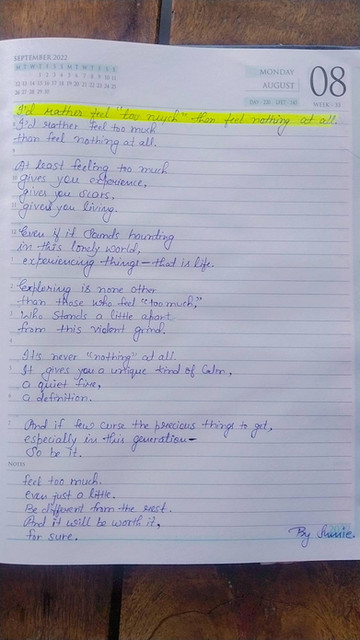 SEPTEMBER 2022
MONDAY
AUGUST
08
WEEK - 33
I'd rather feel "too much" than feel nothing at all.
I'd rather feel too much
than feel nothing at all.
At least feeling too much
gives you experience,
gives you scars,
gives you living.
Even if it sounds haunting
in this lonely world,
experiencing things — that is life.
Exploring is none other
than those who feel "too much,"
Who stands a little apart
from this violent grind.
It's never "nothing" at all.
It gives you a unique kind of calm,
a quiet fire,
a definition.
And if few curse the precious things to get,
especially in this generation —
So be it.
NOTES
feel too much.
Even just a little.
Be different from the rest.
And it will be worth it,
for sure.
By